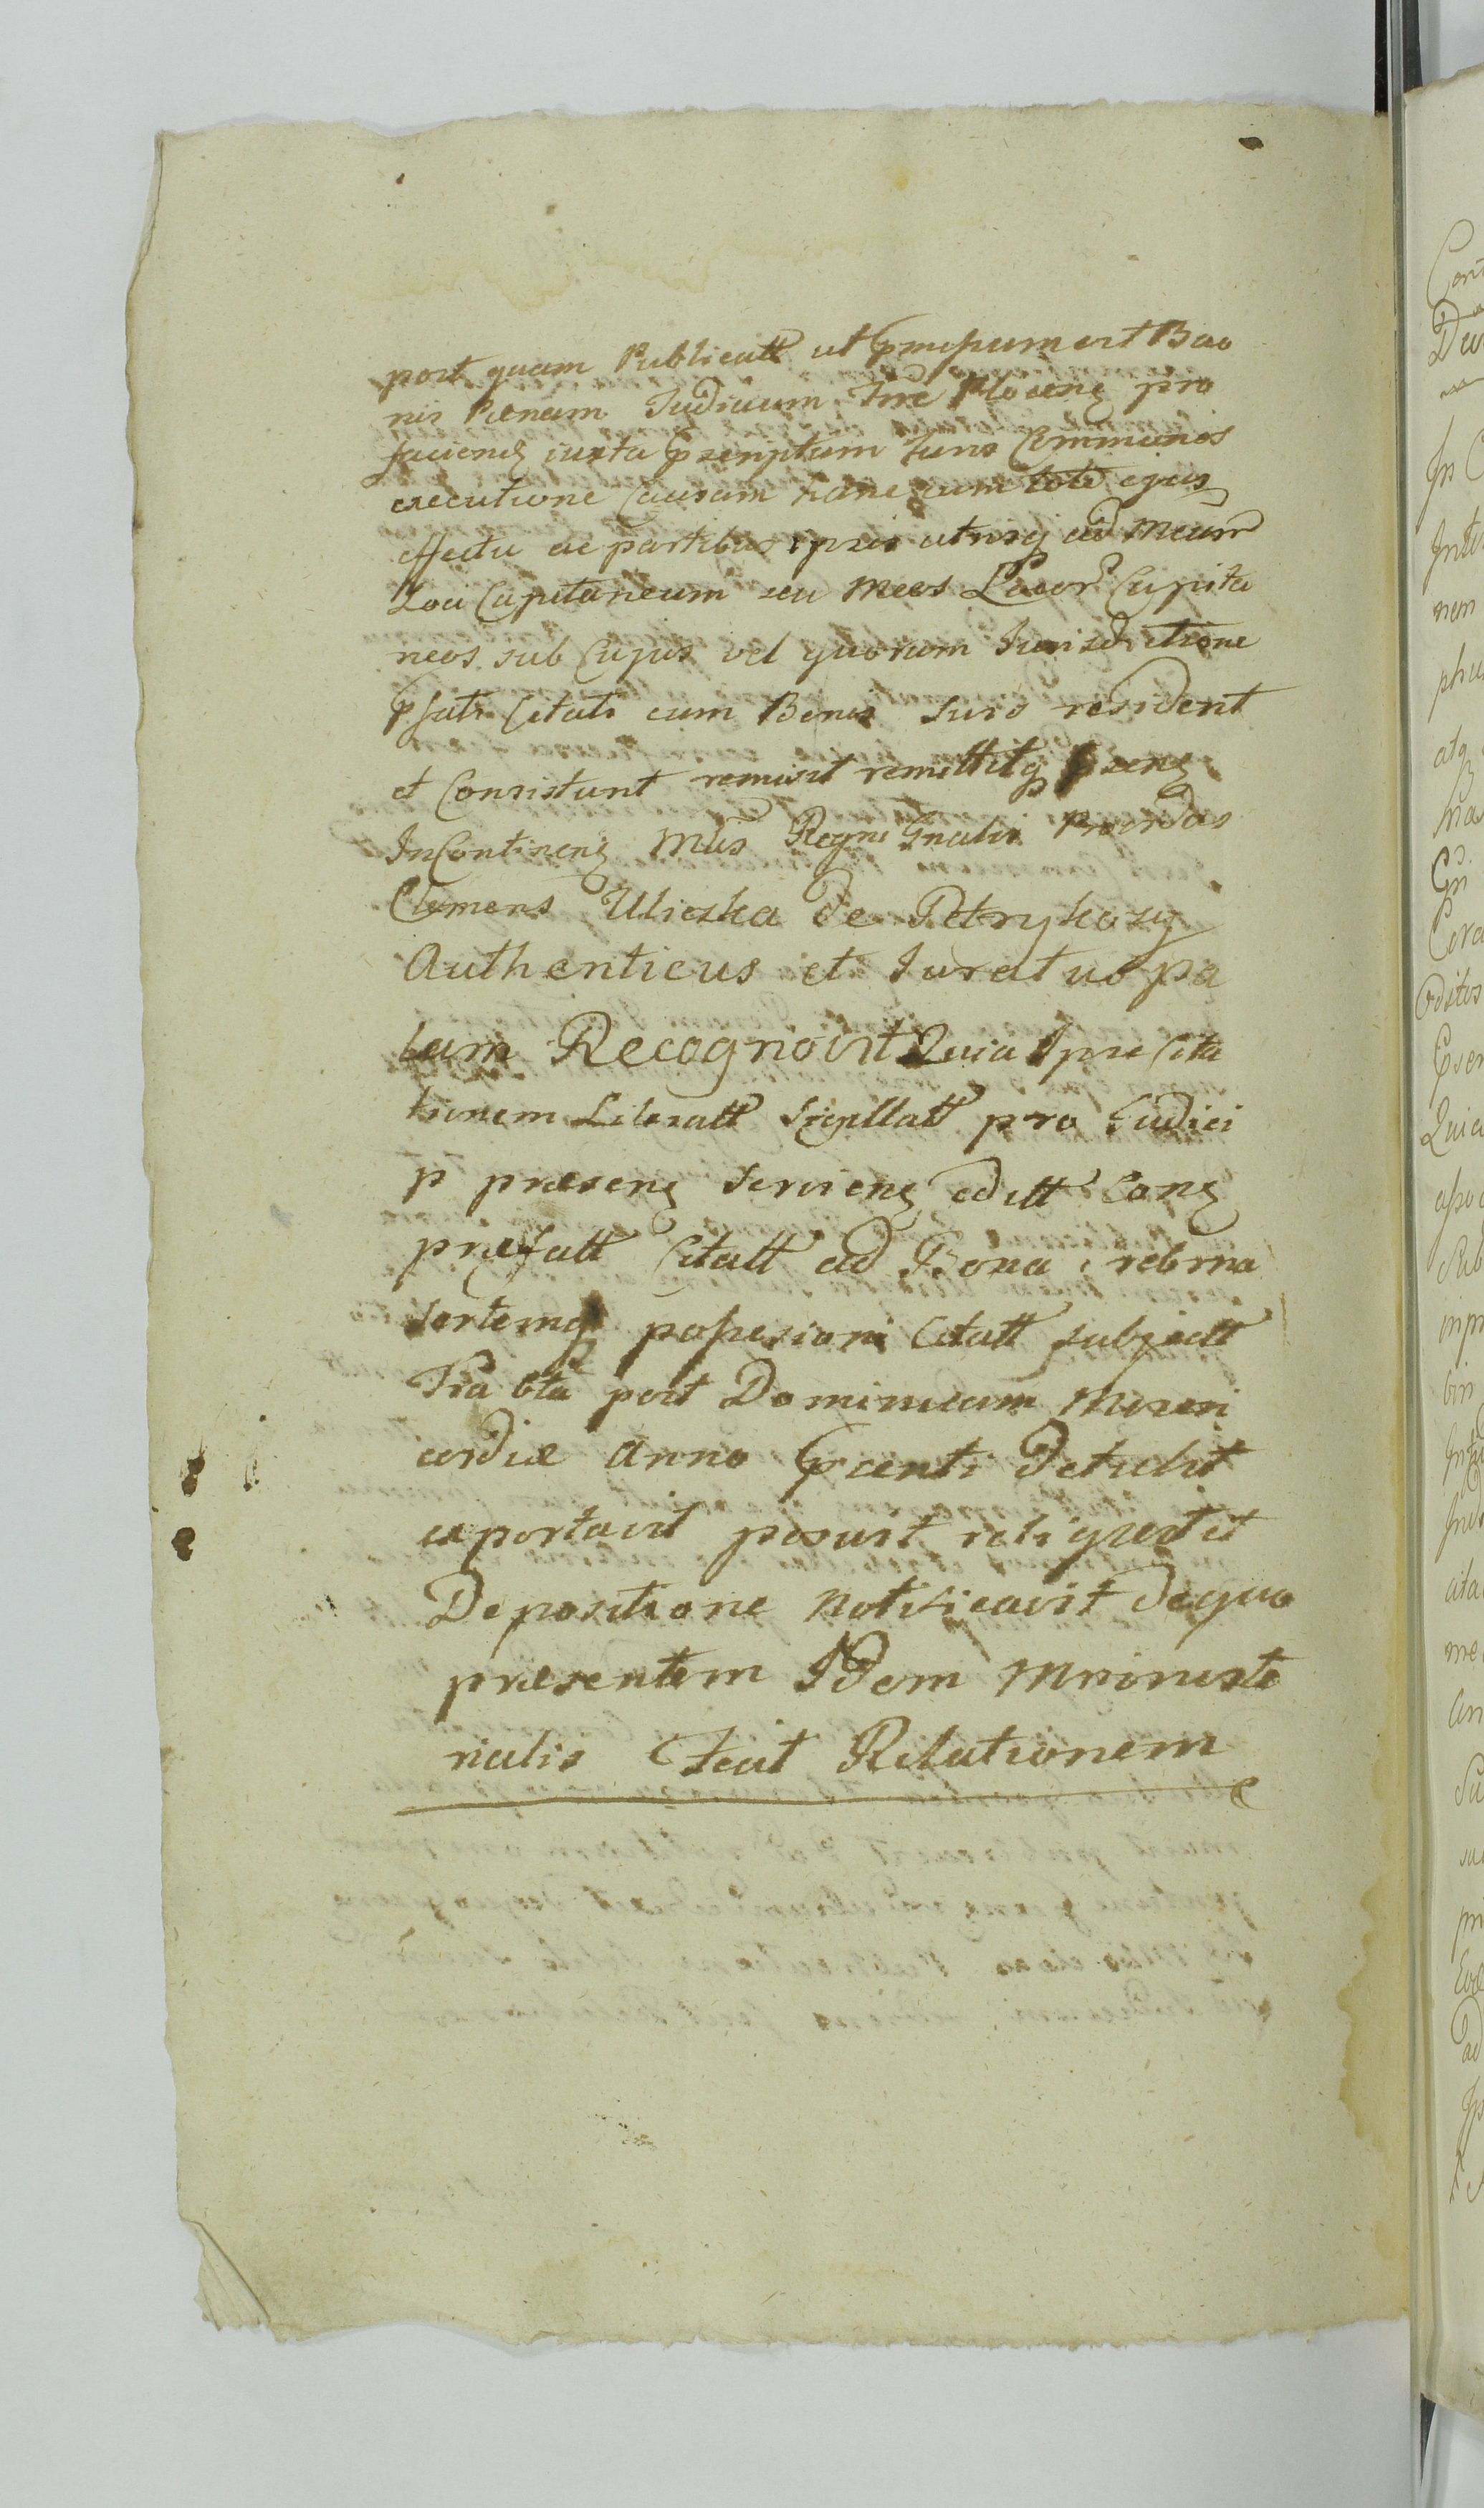 post quam Publicatt ut pmisum est Bao
nis Pænam Judicium Tire Plocenß pro
facienß iuxta Pscriptum Juris Communos
executione Causam hanc cum toto ejus
effectu ac partibus ipsis utrisq ad Meum
Loci Capitaneum seu Meos Locor Capita
neos sub Cujus vel quorum Jurisdictione
Pfati Citati cum Bonis suis resident
et Consistunt remisit remittitq Psens
InContinens Mlis Regni Gnalis Providus
Clemens Uliczka de Petrykozy
Authenticus et Juratus pa
lam Recognovit Quia Ipse Cita
tionem Literatt Sigillatt pro Judici
p præsens serviens editt Cons
præfatt Citatt ad Bona
sortemq possesioni Citatt subjectt
Fria 6ta post Dominicam Miseri
cordiæ Anno Pcenti Detulit
exportavit posuit reliquit et
Depositione notificavit de quo
præsentem Idem Mministe
rialis Fecit Relationem